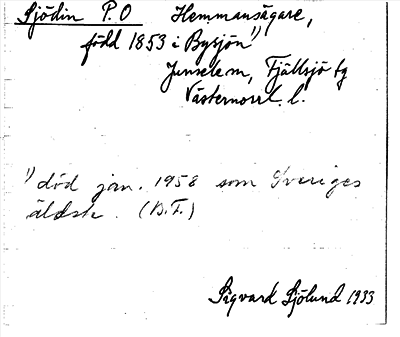 Sjödin P.O Hemmansägare,
född 1853 i Bysjön 1)
Junsele sn, Fjällsjö tg
Västernorrl. l.
1) död jan. 1958 som Sveriges
äldste. (B.F.)
Sigvard Sjölund 1933